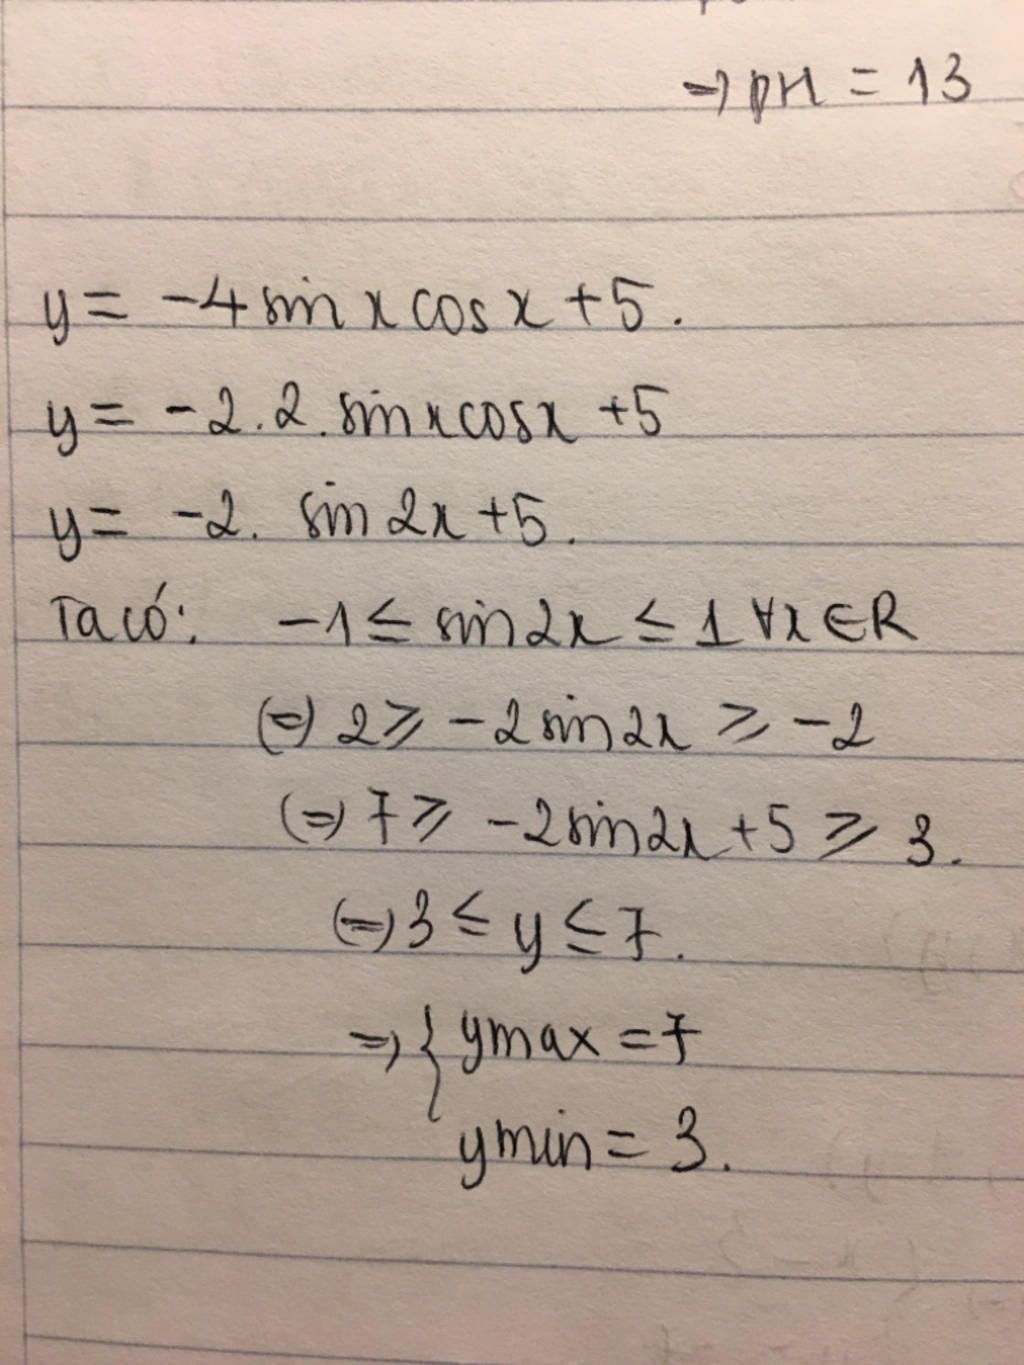 ⇒ pH = 13
y = -4 sin x cos x + 5.
y = -2.2. sin x cos x + 5
y = -2. sin 2x + 5.
Ta có: -1 ≤ sin 2x ≤ 1 ∀x ∈ R
(=) 2 ≥ -2 sin 2x ≥ -2
(=) 7 ≥ -2 sin 2x + 5 ≥ 3.
(=) 3 ≤ y ≤ 7.
⇒ { ymax = 7
ymin = 3.